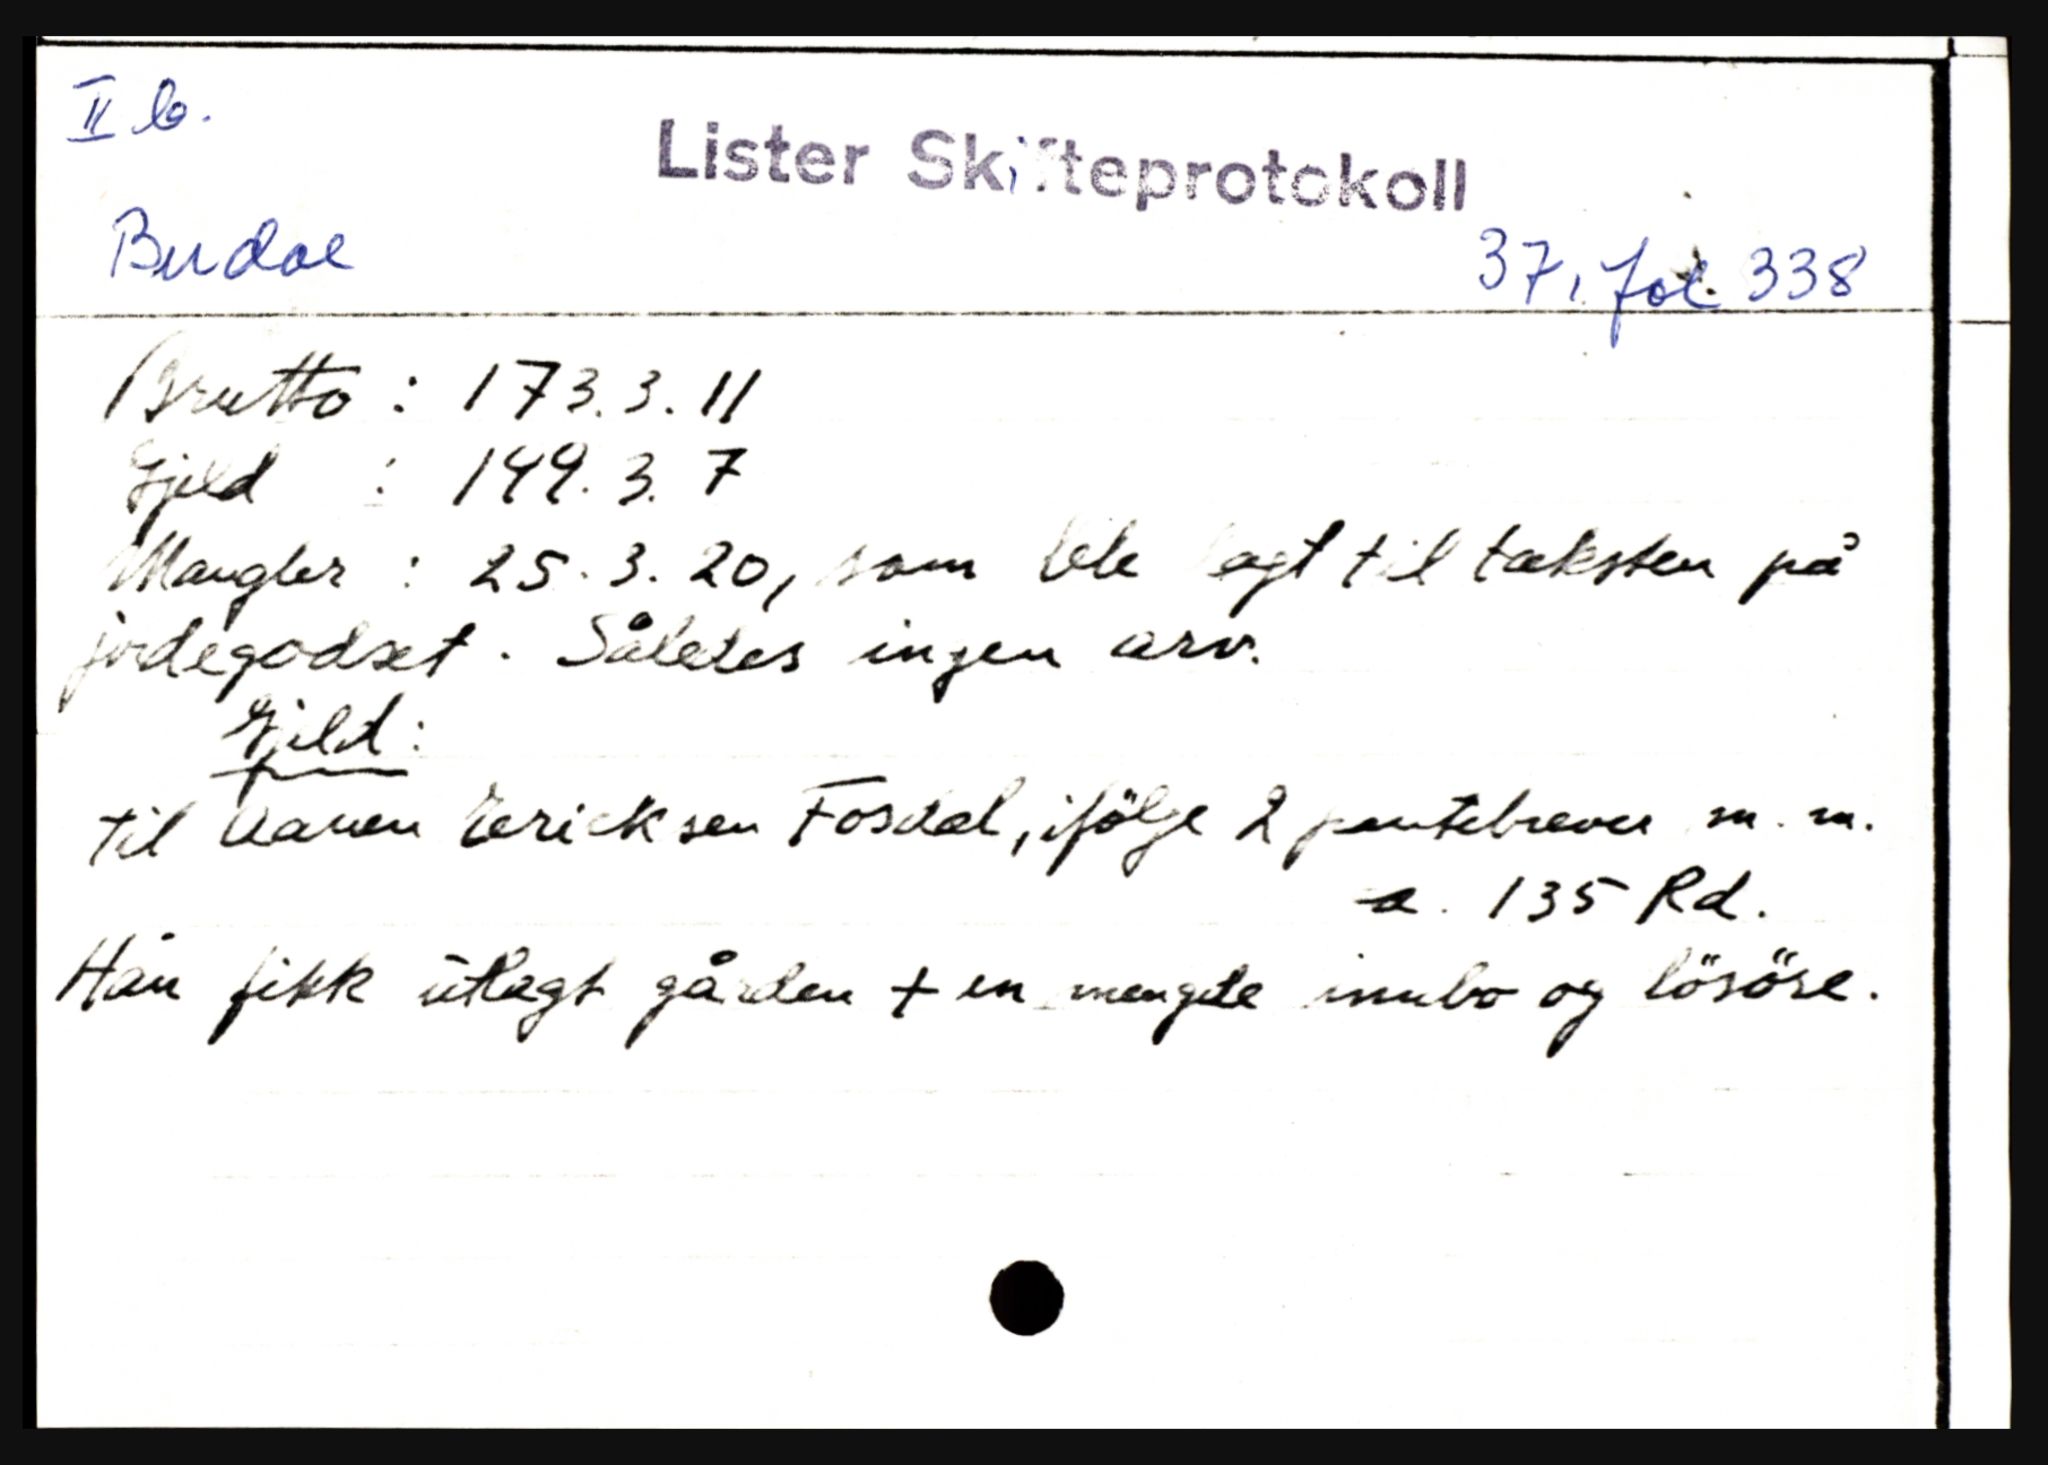 II b.
Lister Skifteprotokoll
Budal
37, fol. 338
Brutto : 173.3.11
Gjeld : 199.3.7
Mangler : 25.3.20, som ble lagt til taksten på
jordegodset. Således ingen arv.
Gjeld:
til Aanen Ericksen Fosdal, ifölge 2 pantebrever m.m.
a. 135 Rd.
Han fikk utlagt gården + en mengde innbo og lösöre.